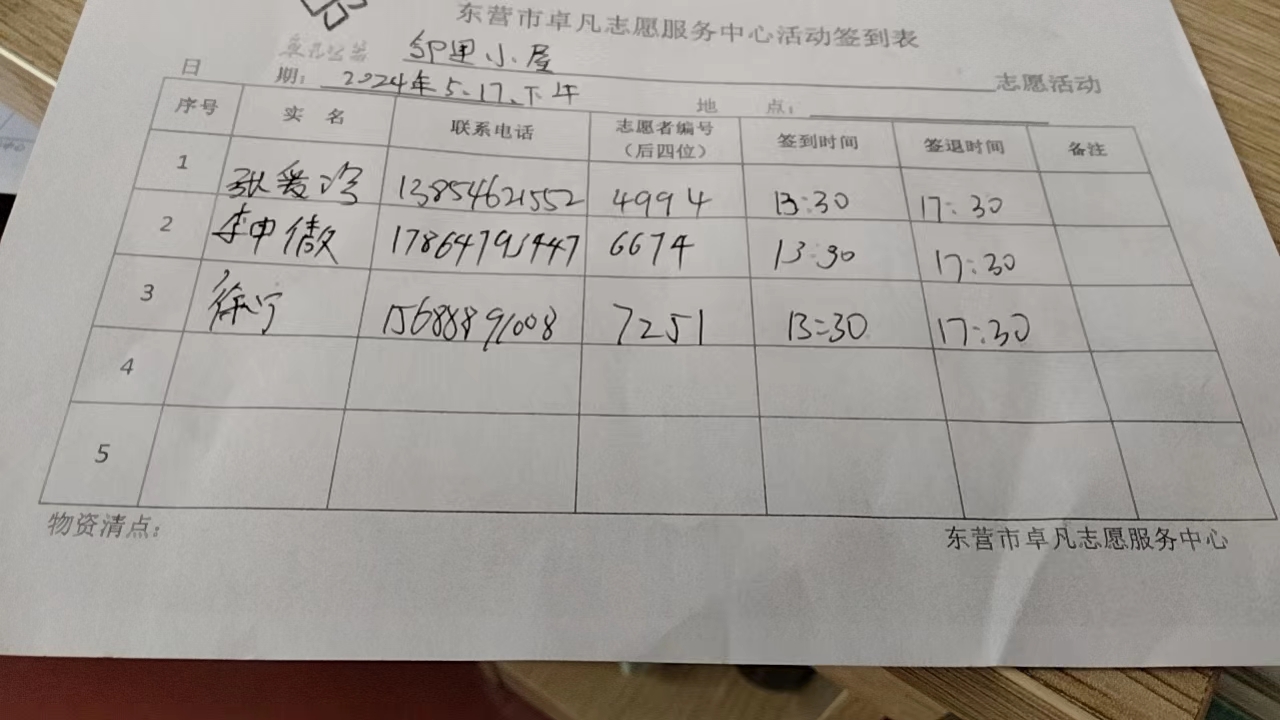 东营市卓凡志愿服务中心活动签到表
小屋 志愿活动
日 期：2024年5.17.下午 地 点：
序号 实 名 联系电话 志愿者编号（后四位） 签到时间 签退时间 备注
1 张爱 13854621552 4994 13:30 17:30
2 李申 6674 13:30 17:30
3 徐宁 15688891008 7251 13:30 17:30
4
5
物资清点：
东营市卓凡志愿服务中心